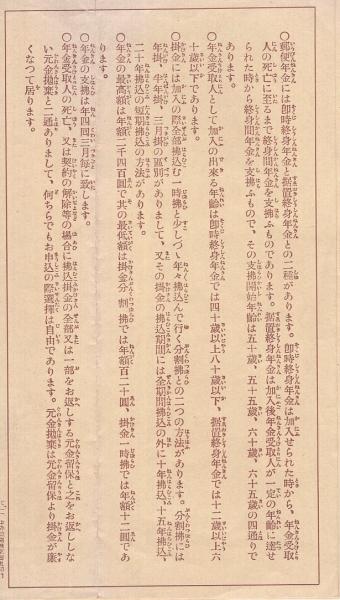 〇郵便年金には即時終身年金と据置終身年金との二種があります。即時終身年金は加入せられた時から、年金受取
人の死亡に至るまで終身間年金を支払ふものであります。据置終身年金は加入後年金受取人が一定の年齢に達せ
られた時から終身間年金を支払ふもので、その支払開始年齢は五十歳、五十五歳、六十歳、六十五歳の四通りで
あります。
〇年金受取人として加入の出来る年齢は即時終身年金では四十歳以上八十歳以下、据置終身年金では十二歳以上六
十歳以下であります。
〇掛金には加入の際全部払込む一時払と少しづゝ年々払込んで行く分割払との二つの方法があります。分割払には
年掛、半年掛、三月掛の区別がありまして、又その掛金の払込期間には全期間払込の外に十年払込、十五年払込、
二十年払込の短期払込の方法があります。
〇年金の最高額は年額二千四百圓で其の最低額は掛金分割払では年額百二十圓、掛金一時払では年額十二圓であ
ります。
〇年金の支払は年四回三月毎に致します。
〇年金受取人の死亡、又は契約の解除等の場合に払込掛金の全部又は一部をお返しする元金留保と之をお返ししな
い元金抛棄と二通ありまして、何ちらでもお申込の際選択は自由であります。元金抛棄は元金留保より掛金が廉
くなつて居ります。